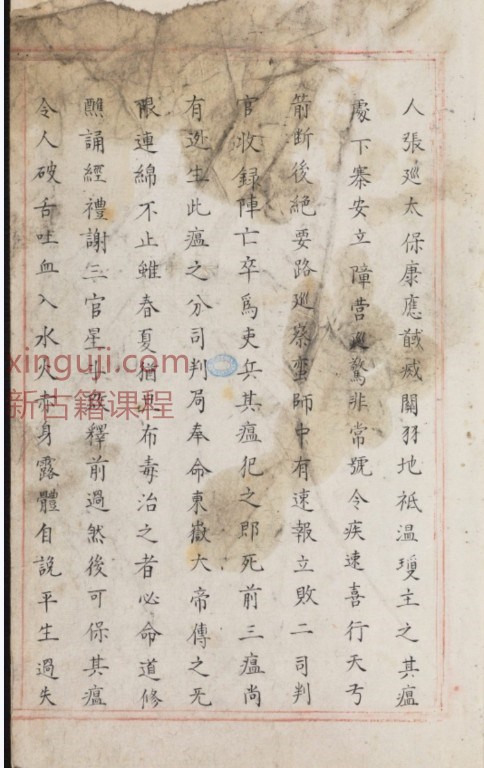 人張巡太保康應馘滅關羽地祇温瓊主之其瘟
處下寨安立障营巡警非常號令疾速喜行天弓
箭断後絶要路巡察蛮師中有速報立敗二司判
官收録陣亡卒爲吏兵其瘟犯之即死前三瘟尚
有逃生此瘟之分司判局奉命東嶽大帝傳之死
限連綿不止雖春夏猶再布毒治之者必命道修
醮誦經禮謝三官星斗釋前過然後可保其瘟
令人破舌吐血入水火赤身露體自説平生過失
xinguji.com
新古籍课程